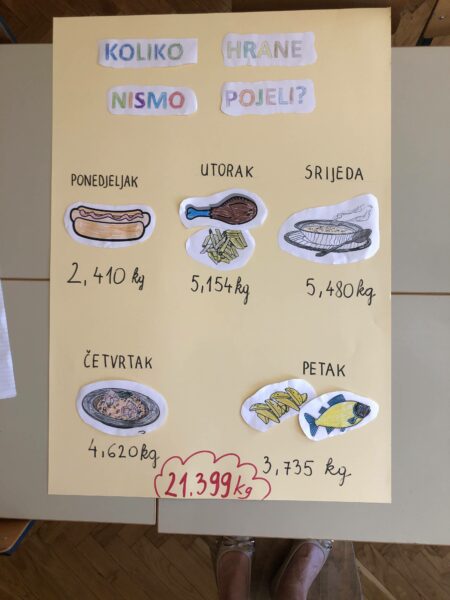 KOLIKO HRANE
NISMO POJELI?
PONEDJELJAK
2,410 kg
UTORAK
5,154 kg
SRIJEDA
5,480 kg
ČETVRTAK
4,620 kg
PETAK
3,735 kg
21,399 kg